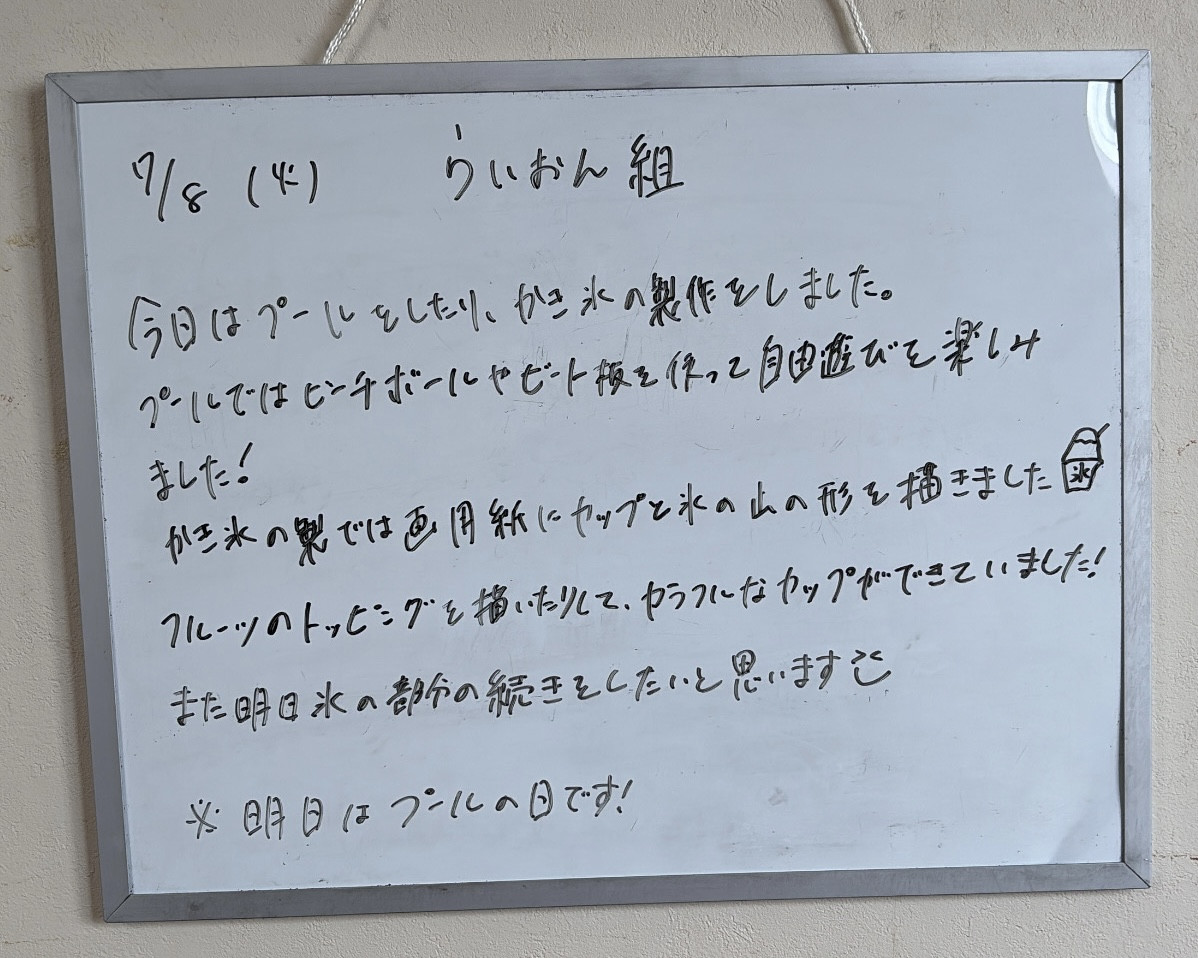 7/8 (火) らいおん組
今日はプールをしたり、かき氷の製作をしました。
プールではピンチボールやビート板を使って自由遊びを楽しみ
ました!
かき氷の製では画用紙にカップと氷の山の形を描きました
氷
フルーツのトッピングを描いたりして、カラフルなカップができていました!
また明日氷の部分の続きをしたいと思います
※明日はプールの日です!